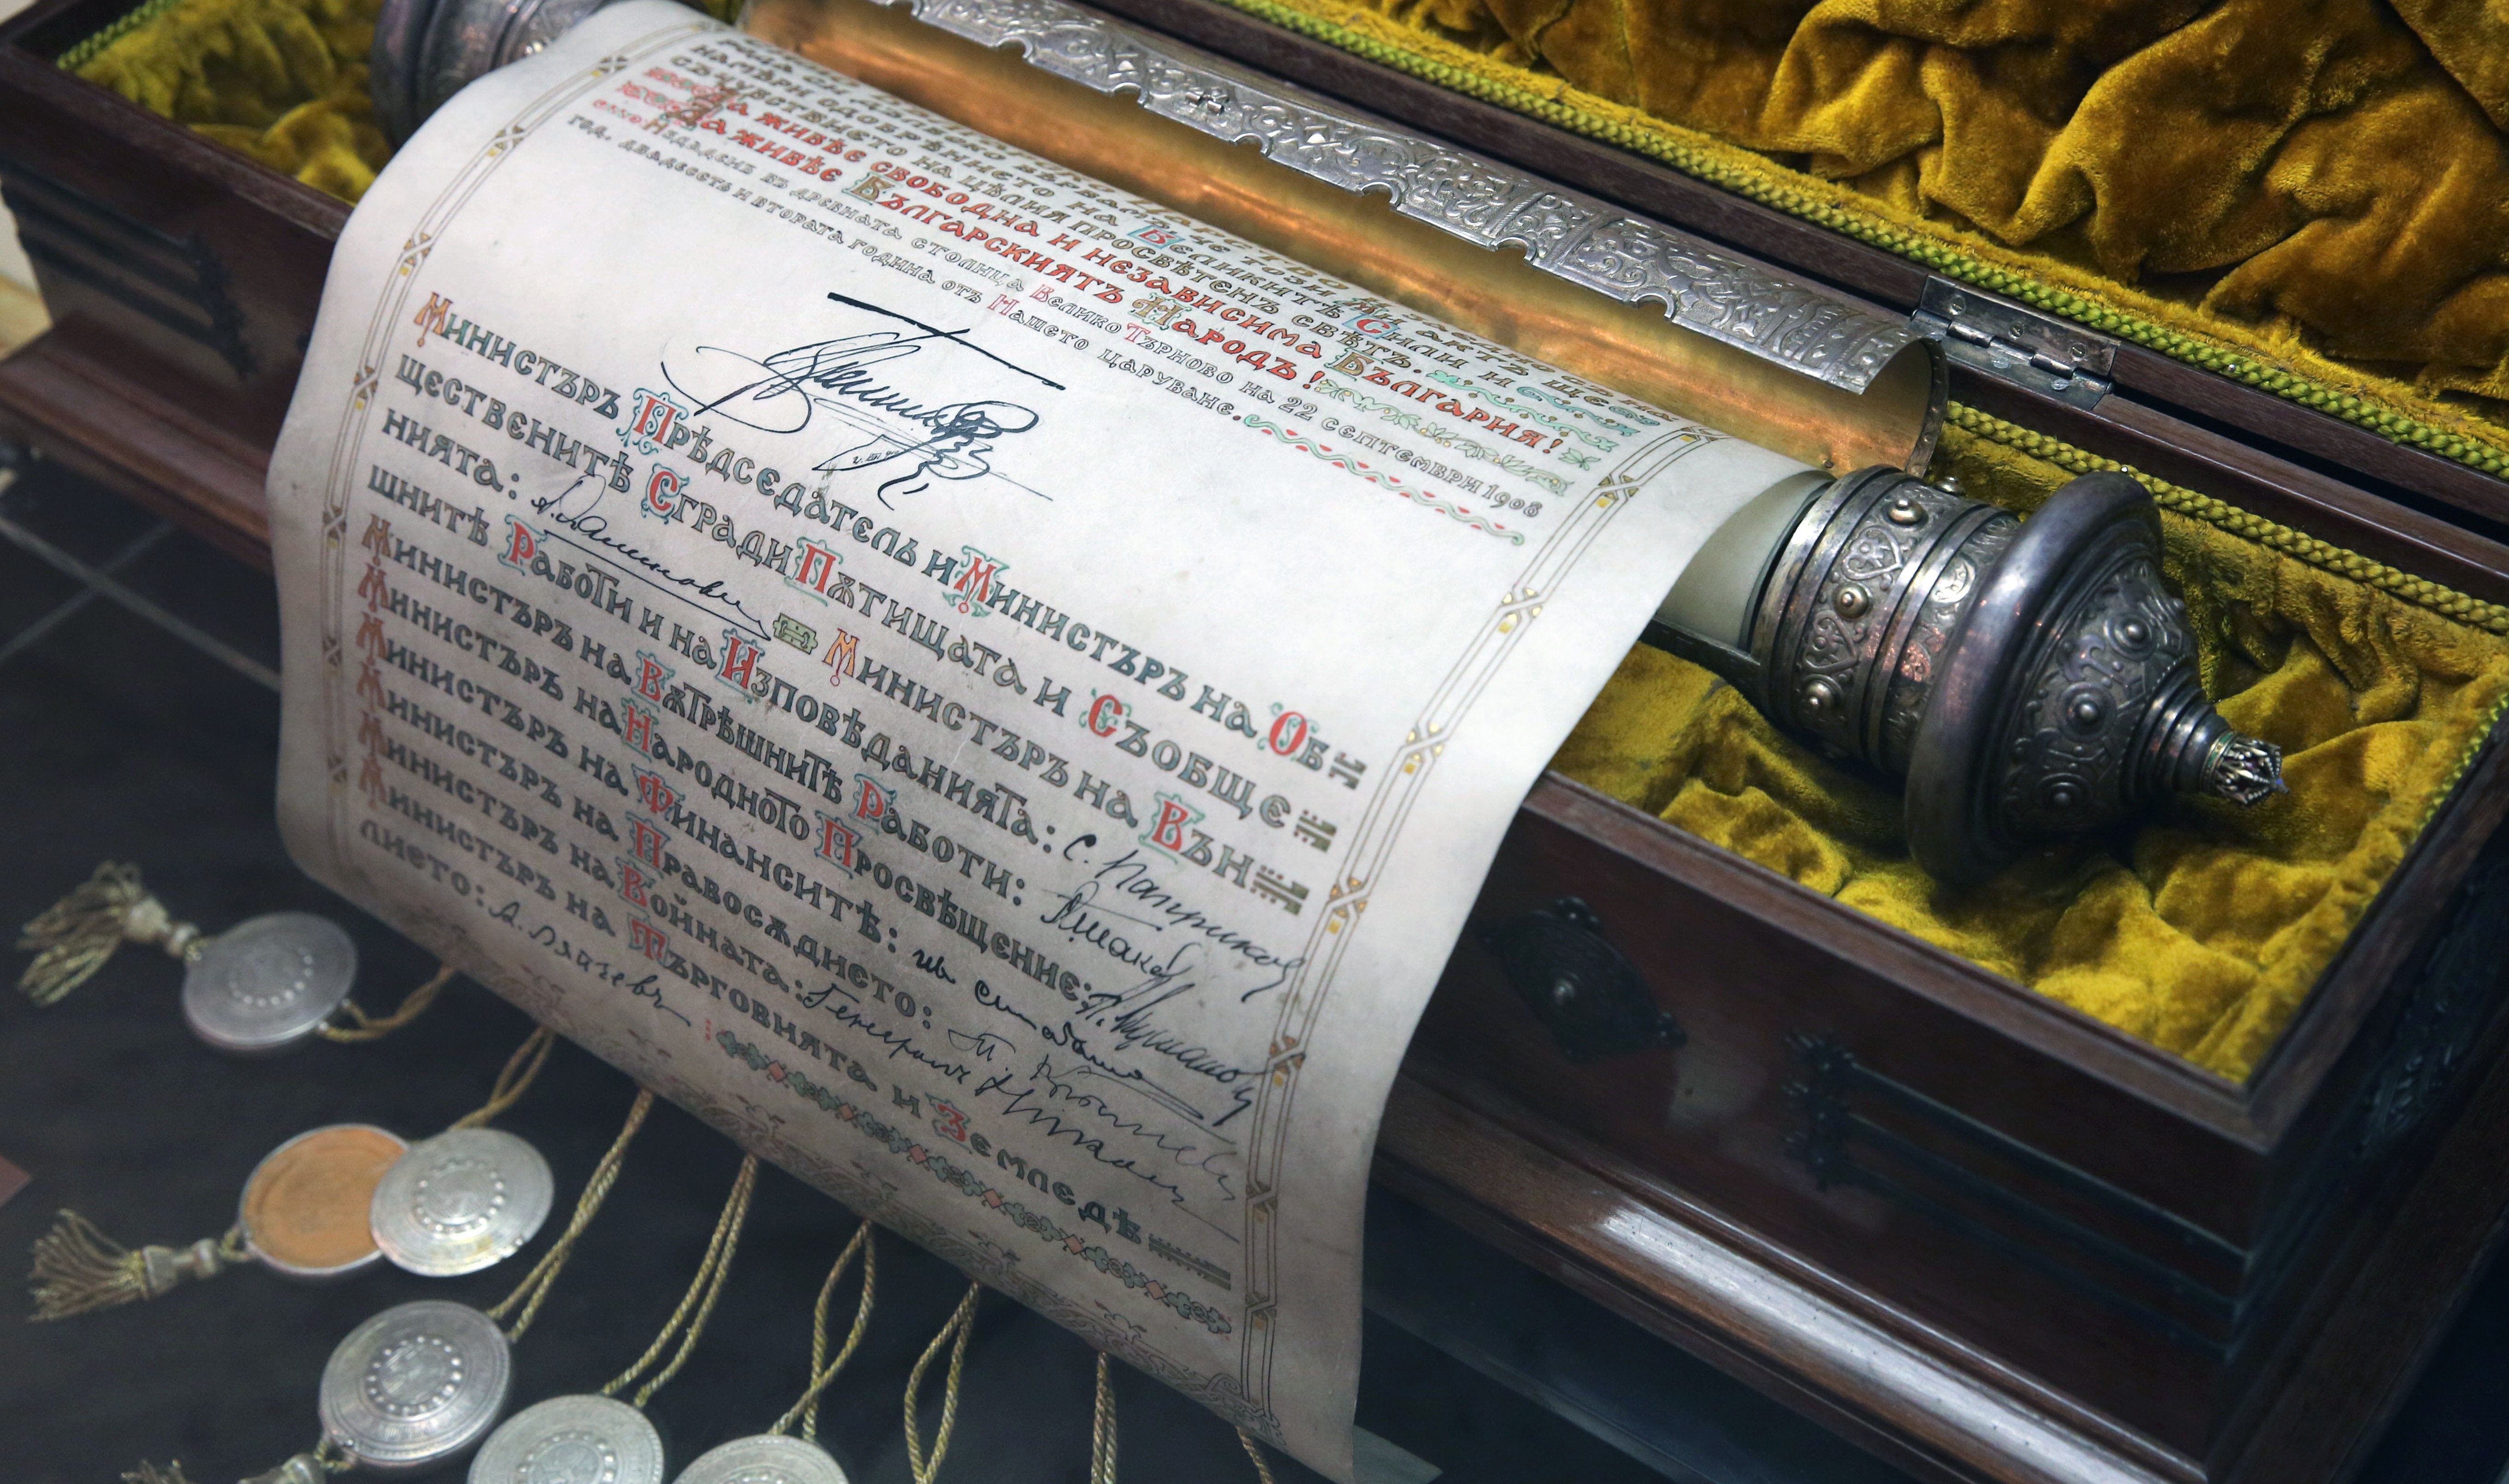 намѣри одобрѣнието на Великитѣ Сили и
съчувствието на цѣлия просвѣтенъ свѣтъ.
Да живѣе свободна и независима България!
Да живѣе Българскиятъ Народъ!
Издаденъ въ древната столица Велико Търново на 22 септемврий 1908
год. двадесеть и втората година отъ Нашето царуване.
Министъръ Прѣдседатель и Министъръ на Об
щественитѣ Сгради Пѫтищата и Съобще
нията: А. Малиновъ Министъръ на Вън
шнитѣ Работи и на Изповѣданията: С. Паприковъ
Министъръ на Вѫтрѣшнитѣ Работи:
Министъръ на Народното Просвѣщение: Н. Мушановъ
Министъръ на Финанситѣ: Ив. Салабашевъ
Министъръ на Правосѫдието: Т. Кръстевъ
Министъръ на Войната: Генералъ Николаевъ
Министъръ на Търговията и Земледѣ
лието: А. Ляпчевъ